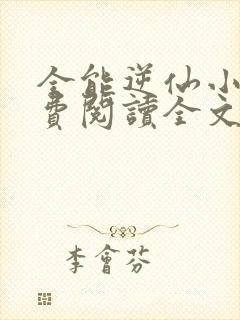 全能逆仙小
費閱讀全文
李會芬